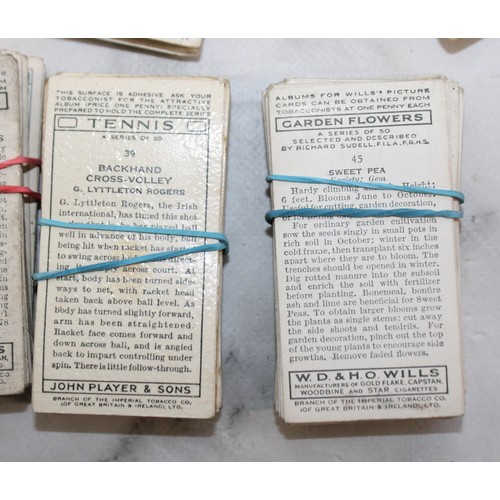 THIS SURFACE IS ADHESIVE ASK YOUR
TOBACCONIST FOR THE ATTRACTIVE
ALBUM (PRICE ONE PENNY) SPECIALLY
PREPARED TO HOLD THE COMPLETE SERIES
TENNIS
A SERIES OF 50
39
BACKHAND
CROSS-VOLLEY
G. LYTTLETON ROGERS
G. Lyttleton Rogers, the Irish
international, has timed this shot
played ball
well in advance of his body, ball
being hit when racket has
across court. At
start, body has been turned side-
ways to net, with racket head
taken back above ball level. As
body has turned slightly forward,
arm has been straightened.
Racket face comes forward and
down across ball, and is angled
back to impart controlling under
spin. There is little follow-through.
JOHN PLAYER & SONS
BRANCH OF THE IMPERIAL TOBACCO CO.
(OF GREAT BRITAIN & IRELAND), LTD.
ALBUMS FOR WILLS'S PICTURE
CARDS CAN BE OBTAINED FROM
TOBACCONISTS AT ONE PENNY EACH
GARDEN FLOWERS
A SERIES OF 50
SELECTED AND DESCRIBED
BY RICHARD SUDELL, F.I.L.A., F.R.H.S.
45
SWEET PEA
Variety: Gem
Hardy climbing Height:
6 feet. Blooms June to October.
Useful for cutting, garden decoration,
For ordinary garden cultivation
sow the seeds singly in small pots in
rich soil in October; winter in the
cold frame, then transplant six inches
apart where they are to bloom. The
trenches should be opened in winter.
Dig rotted manure into the subsoil
and enrich the soil with fertilizer
before planting. Bonemeal, bonfire
ash and lime are beneficial for Sweet
Peas. To obtain larger blooms grow
the plants as single stems; cut away
the side shoots and tendrils. For
garden decoration, pinch out the top
of the young plants to encourage side
growths. Remove faded flowers.
W. D. & H. O. WILLS
MANUFACTURERS OF GOLD FLAKE, CAPSTAN,
WOODBINE AND STAR CIGARETTES
BRANCH OF THE IMPERIAL TOBACCO CO.
(OF GREAT BRITAIN & IRELAND), LTD.